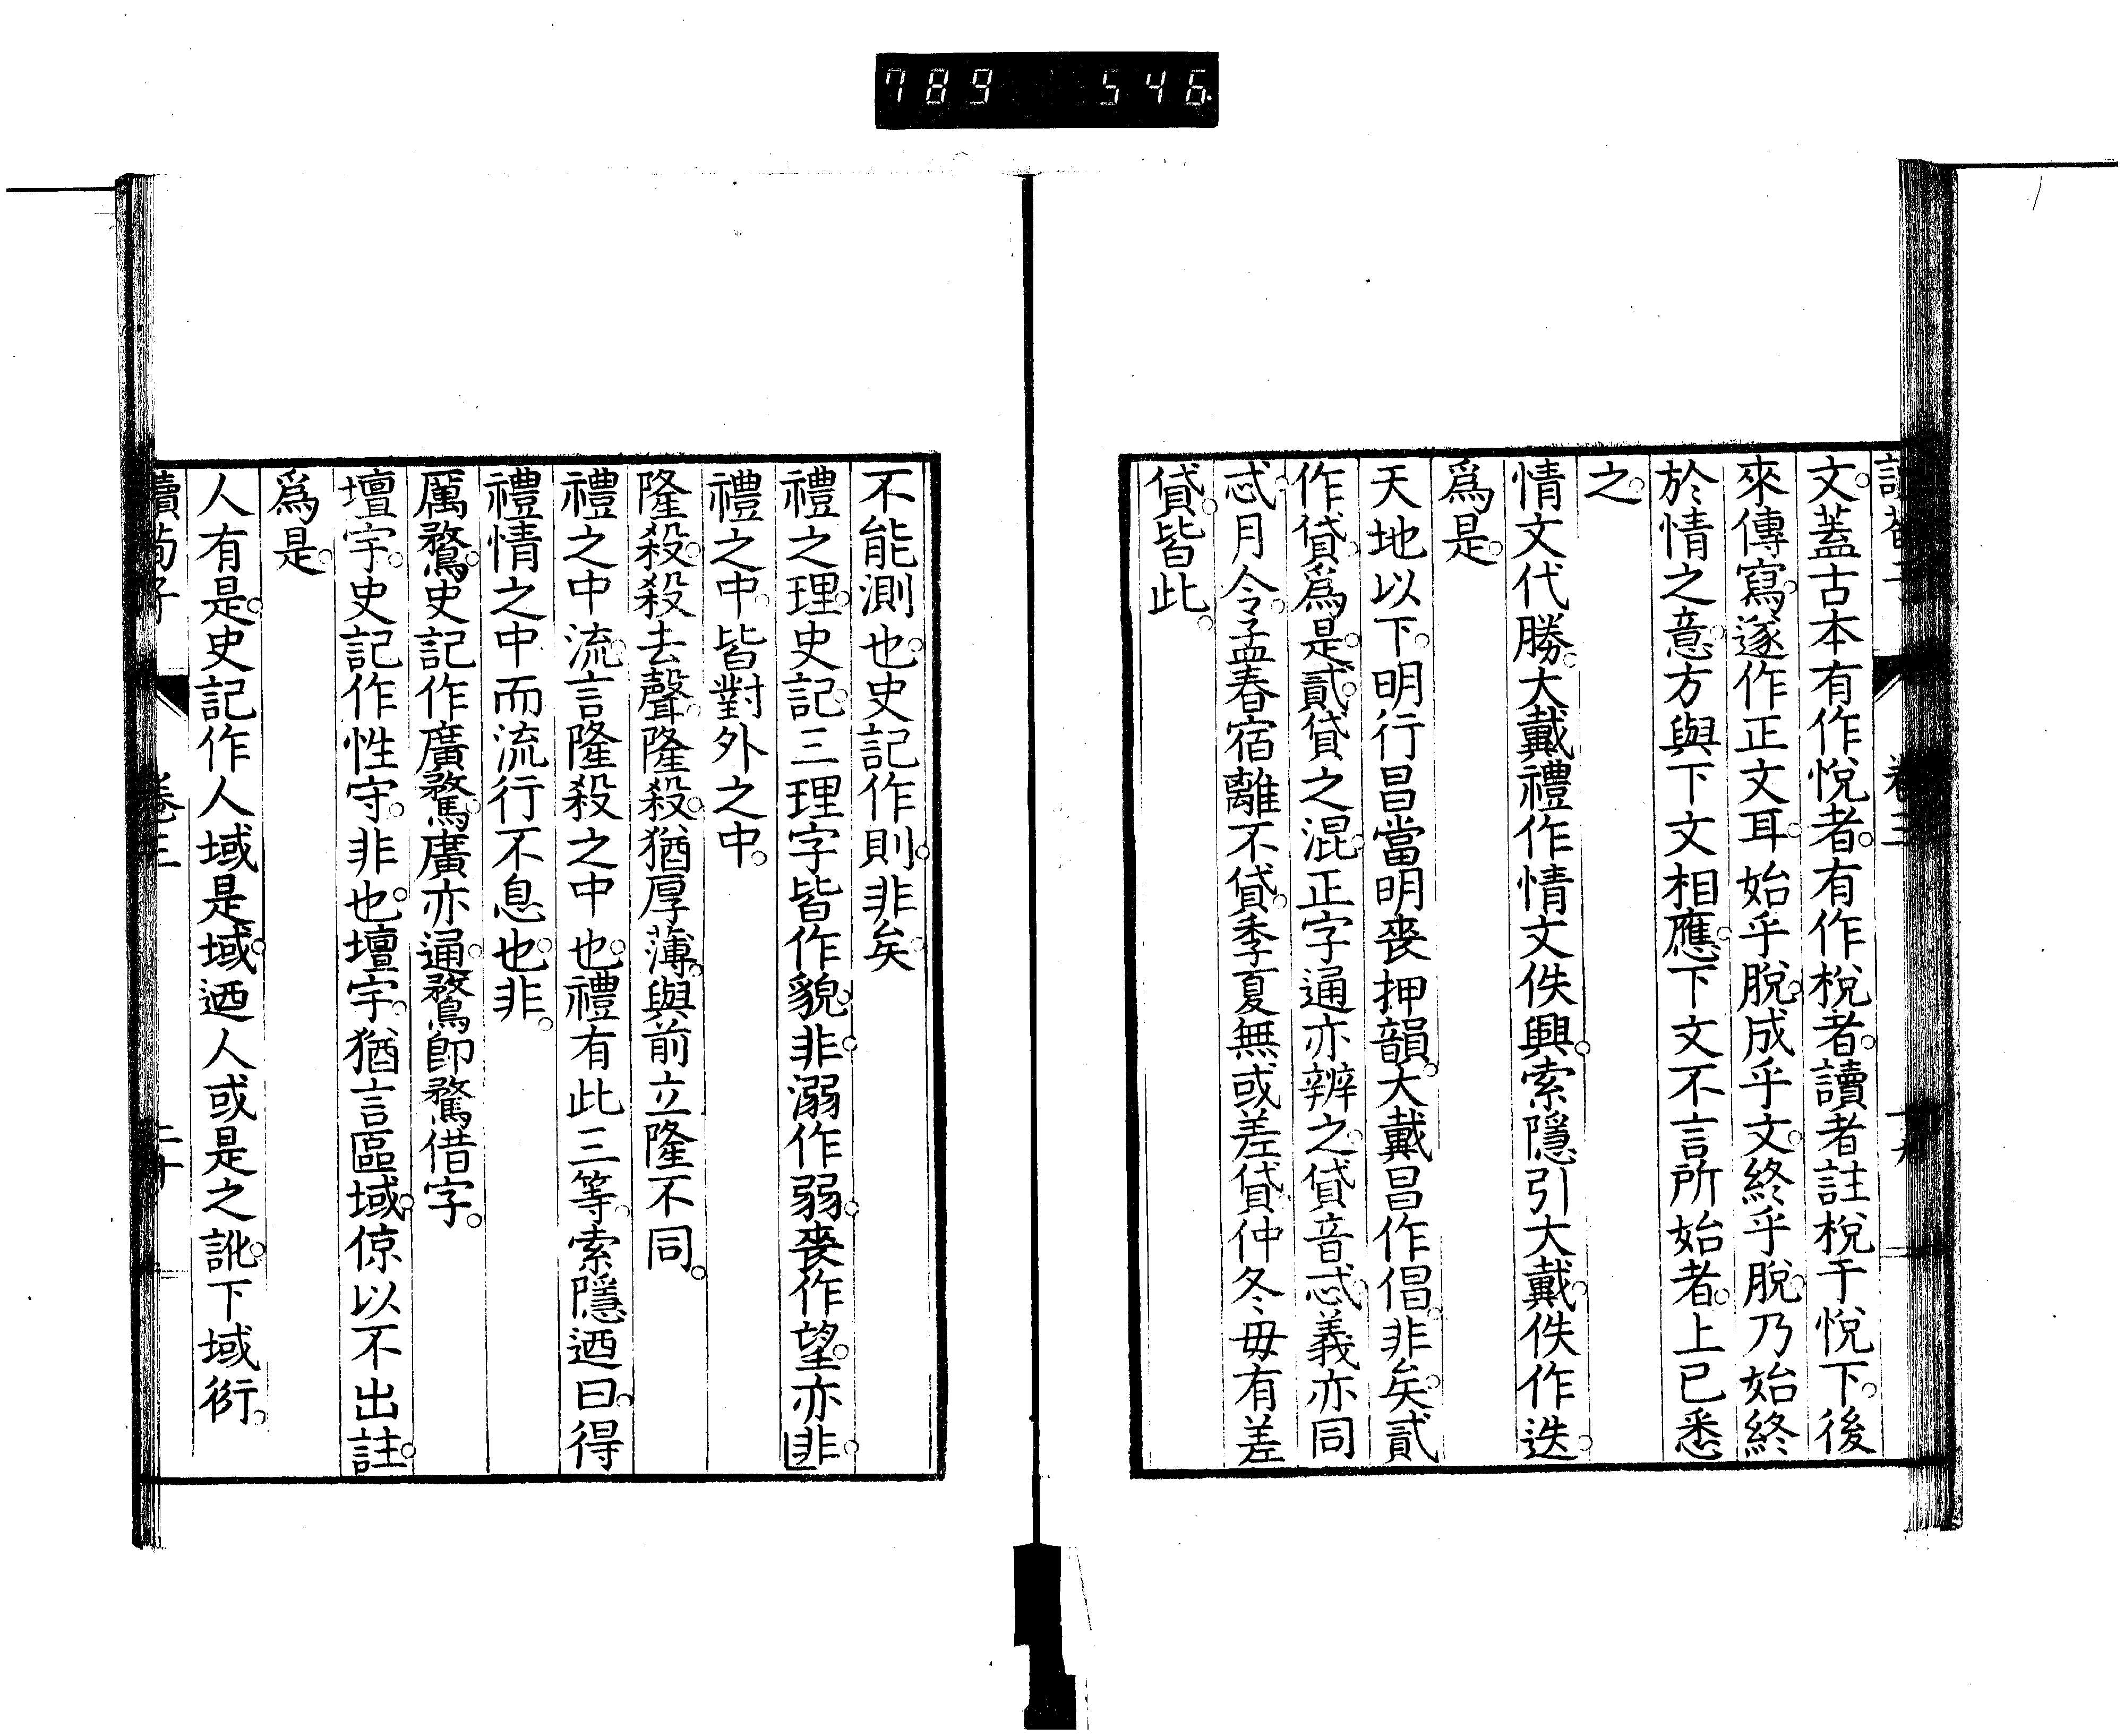 789 546
文。蓋古本有作悅者。有作梲者。讀者註梲于悅下。後
來傳寫。遂作正文耳。始乎脫。成乎文。終乎脫。乃始終
於情之意。方與下文相應。下文不言所始者。上已悉
之。
情文代勝。大戴禮作情文佚興。索隱引大戴。佚作迭。
爲是。
天地以下。明行昌當明喪押韻。大戴昌作倡。非矣。貳
作貸。爲是。貳。貸之混。正字通亦辨之。貸音忒。義亦同
忒。月令。孟春宿離不貸。季夏無或差貸。仲冬毋有差
貸。皆此。
不能測也。史記作則。非矣。
禮之理。史記。三理字皆作貌。非。溺作弱。喪作望。亦非。
禮之中。皆對外之中。
隆殺。殺去聲。隆殺。猶厚薄。與前立隆不同。
禮之中流。言隆殺之中也。禮有此三等。索隱迺曰。得
禮情之中而流行不息也。非。
厲騖。史記作廣騖。廣亦通。鶩卽騖借字。
壇宇。史記作性守。非也。壇宇。猶言區域。倞以不出註。
爲是。
人有是。史記作人域是域。迺人或是之訛。下域衍。
讀荀子 卷三 二十